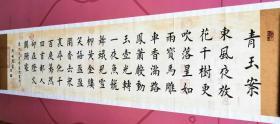 青玉案
東風夜放
花千樹更
吹落星如
雨寶馬雕
車香滿路
鳳簫聲動
玉壺光轉
一夜魚龍
舞蛾兒雪
柳黃金縷
笑語盈盈
暗香去衆
裏尋他千
百度驀然
回首那人
却在燈火
闌珊處